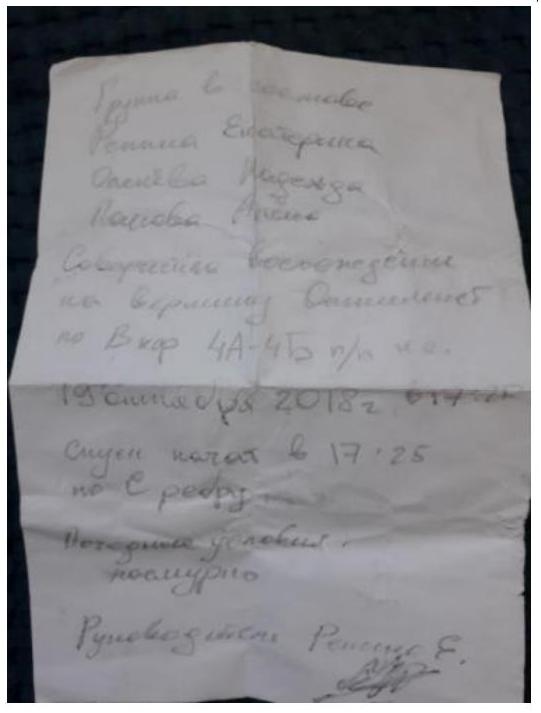 Группа в составе
Репина Екатерина
Оленёва Надежда
Панова Алёна
Совершила восхождение
на вершину
по В кф 4А-4Б п/п на.
19 сентября 2018г. в 17:25
Спуск начат в 17:25
по С ребру
Погодные условия.
пасмурно
Руководитель Репина Е.